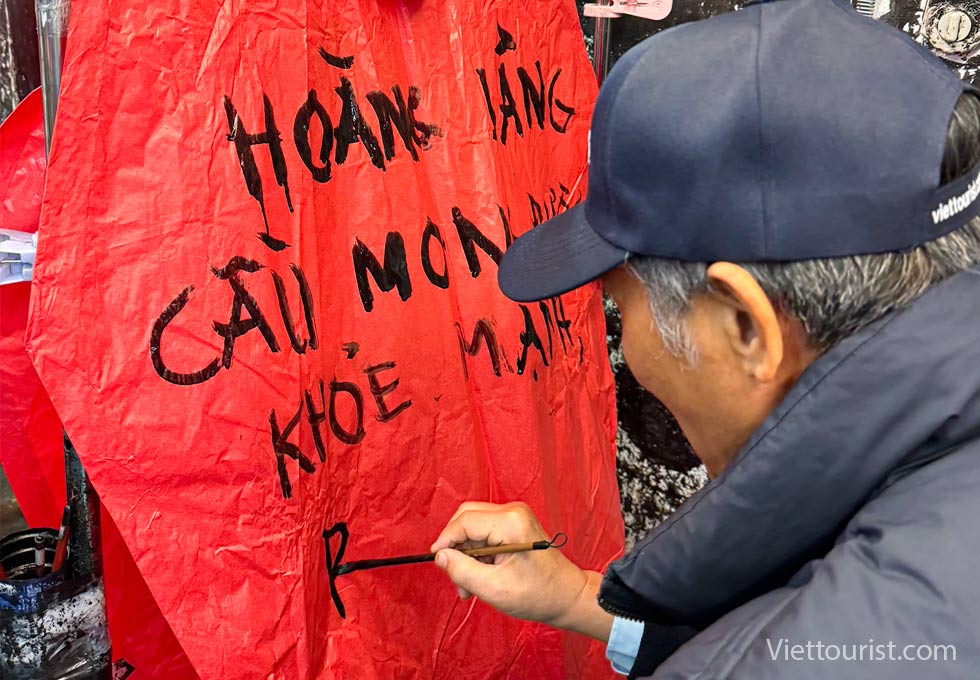 HOÀNG
CẦU MON
KHỎE MẠNH,
R
viettouris
Viettourist.com